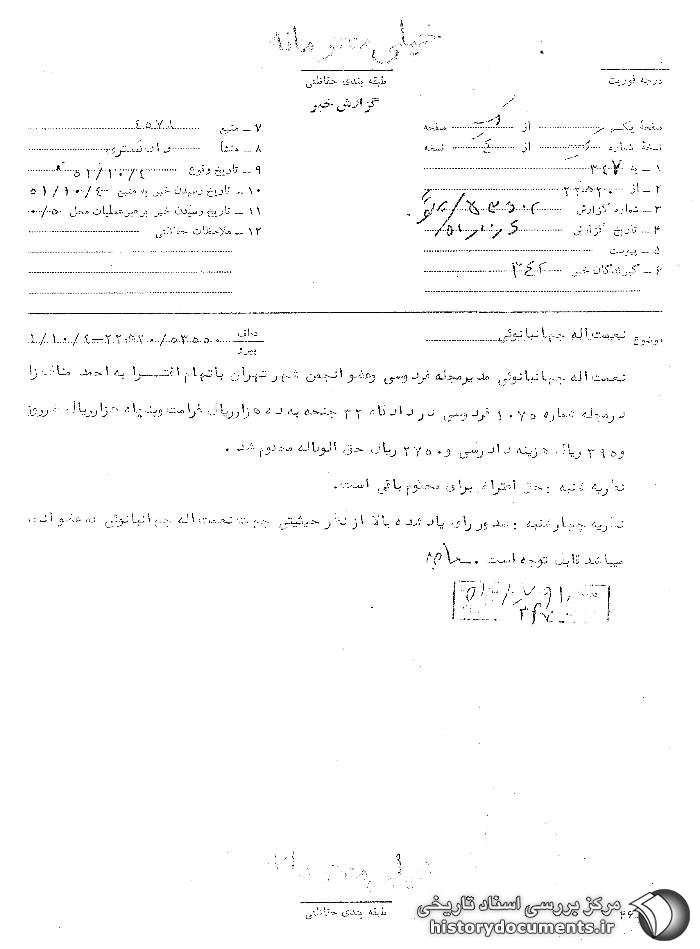 خیلی محرمانه
درجه فوریت
طبقه بندی حفاظتی
گزارش خبر
صفحه یک از صفحه
نسخه شماره از نسخه
۱ ـ به ۳۴۷
۲ ـ از ۲۲ﻫ۲۰
۳ ـ شماره گزارش
۴ ـ تاریخ گزارش
۵ ـ پیوست
۶ ـ گیرندگان خبر ۳۴۲
۷ ـ منبع ۴۵۷۸
۸ ـ منشأ دادگستری
۹ ـ تاریخ وقوع ۵۱/۱۰/۴
۱۰ ـ تاریخ رسیدن خبر به منبع ۵۱/۱۰/۴
۱۱ ـ تاریخ رسیدن خبر برهبر عملیات محل
۱۲ ـ ملاحظات حفاظتی
موضوع نعمت اله جهانبانوئی
عطف
پیرو
نعمت اله جهانبانوئی مدیر مجله فردوسی وعضو انجمن شهر تهران باتهام افترا به احمد
درمجله شماره ۱۰۷۵ فردوسی در دادگاه ۳۲ جنحه به ده هزار ریال غرامت و پنجاه هزار ریال ضرر و زیان
و ۳۹۵ ریال هزینه دادرسی و ۲۷۵۰ ریال حق الوکاله محکوم شد .
نظریه شنبه : حق اعتراض برای محکوم باقی است .
نظریه چهارشنبه : صدور رأی یاد شده بالا از نظر حیثیتی جهت نعمت اله جهانبانوئی که عضو انجمن
میباشد قابل توجه است .
خیلی محرمانه
طبقه بندی حفاظتی
مرکز بررسی اسناد تاریخی
historydocuments.ir